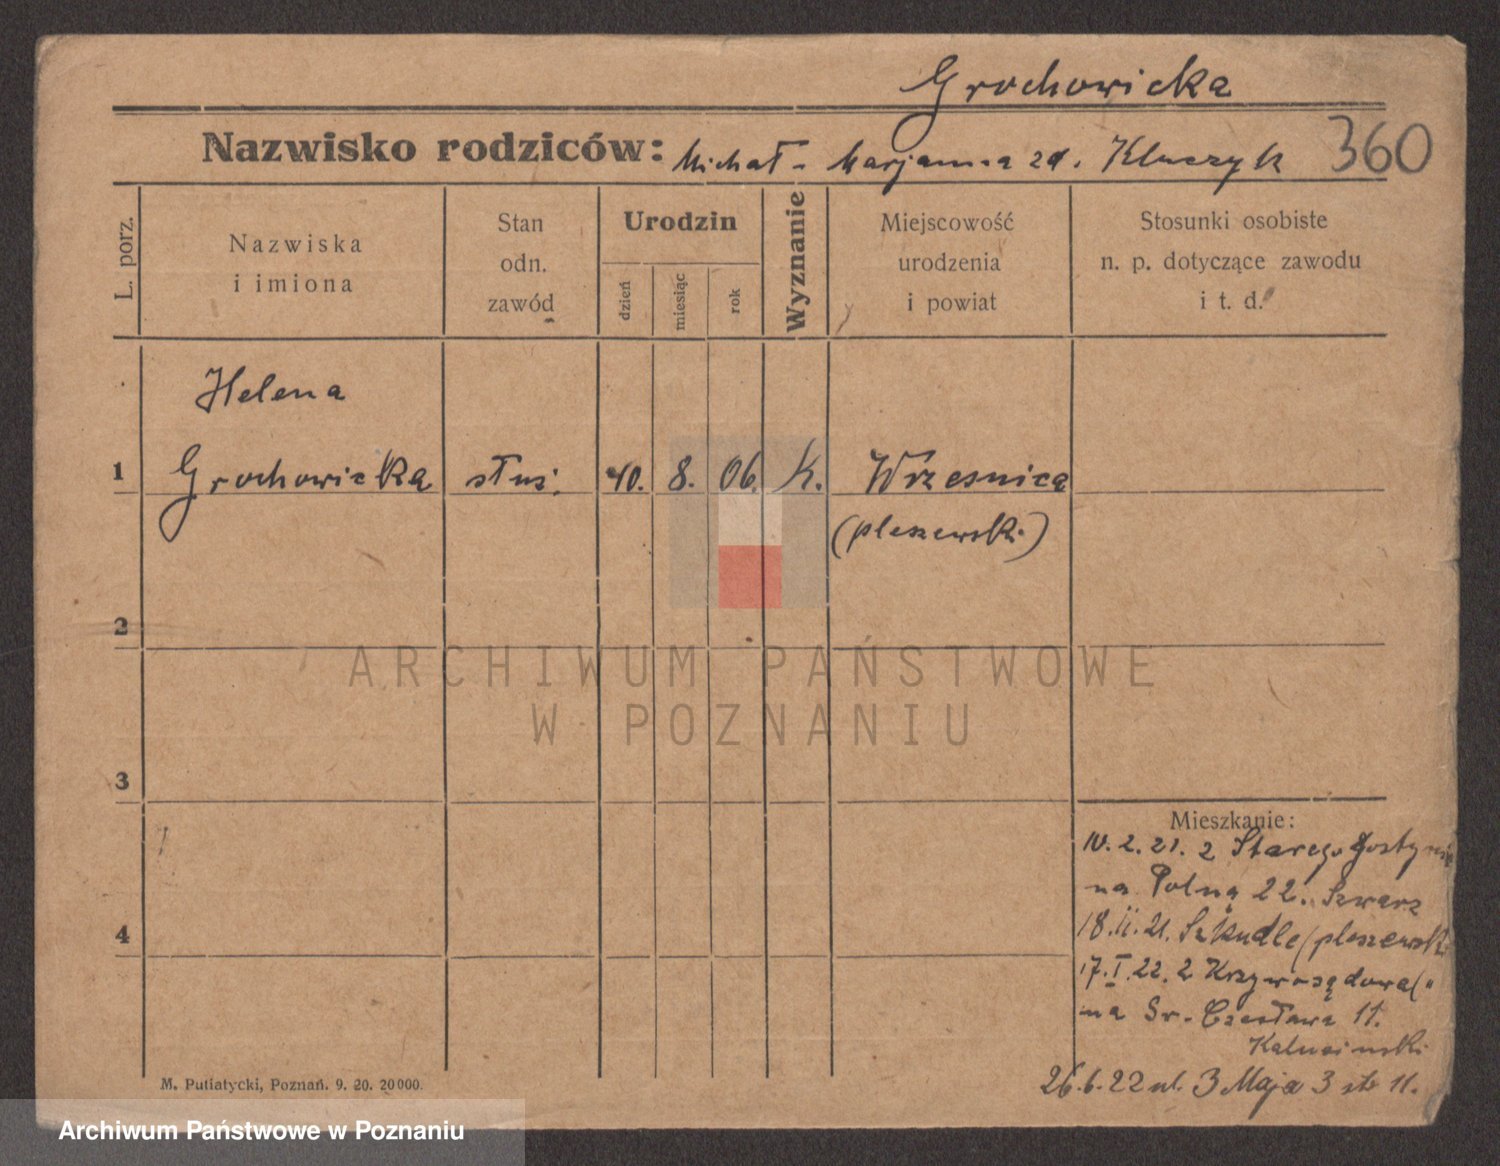 Grochowicka
Nazwisko rodziców: Michał - Marjanna zd. Kluczyk 360
L. porz.
Nazwiska
i imiona
Stan
odn.
zawód
Urodzin
dzień
miesiąc
rok
Wyznanie
Miejscowość
urodzenia
i powiat
Stosunki osobiste
n. p. dotyczące zawodu
i t. d.
Helena
1 Grochowicka służ. 10. 8. 06. K. Wrzesnica
(pleszewski)
2
3
4
Mieszkanie:
10. 2. 21. z Starego
na Polną 22. Szwarz
18. II. 21. Szkudle (pleszewski
17. I. 22. z Krzywosądowa ("
na Św. Czesława 11.
26. 6. 22 ul. 3 Maja 3 str 11.
M. Putiatycki, Poznań. 9. 20. 20000.
ARCHIWUM PAŃSTWOWE
W POZNANIU
Archiwum Państwowe w Poznaniu